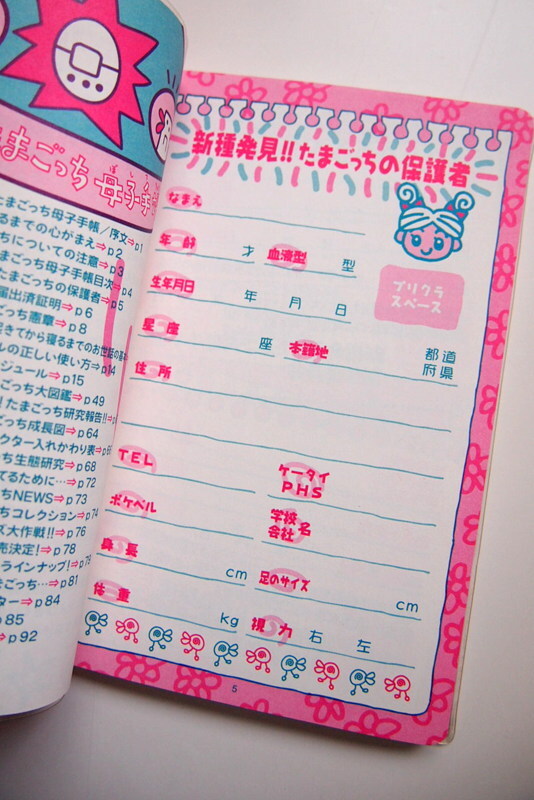 たまごっち 母子手
ぼし
まごっち母子手帳／序文⇒p1
るまでの心がまえ⇒p2
ちについての注意⇒p3
まごっち母子手帳目次⇒p4
たまごっちの保護者⇒p5
届出済証明⇒p6
ごっち憲章⇒p8
起きてから寝るまでのお世話の基本
ルの正しい使い方⇒p14
ジュール⇒p15
ごっち大図鑑⇒p49
！たまごっち研究報告!!⇒
ごっち成長図⇒p64
クター入れかわり表⇒p
ち生態研究⇒p68
てるために…⇒p72
ちNEWS⇒p73
ちコレクション⇒p74
ズ大作戦!!⇒p76
売決定！⇒p78
ラインナップ！⇒p79
ごっち…⇒p81
ター⇒p84
p85
⇒p92
新種発見!!たまごっちの保護者
なまえ
年齢 才 血液型 型
生年月日 年 月 日
プリクラ
スペース
星座 座 本籍地 都道
府県
住所
TEL ケータイ
PHS
ポケベル 学校名
会社
身長 cm 足のサイズ cm
体重 kg 視力 右 左
5